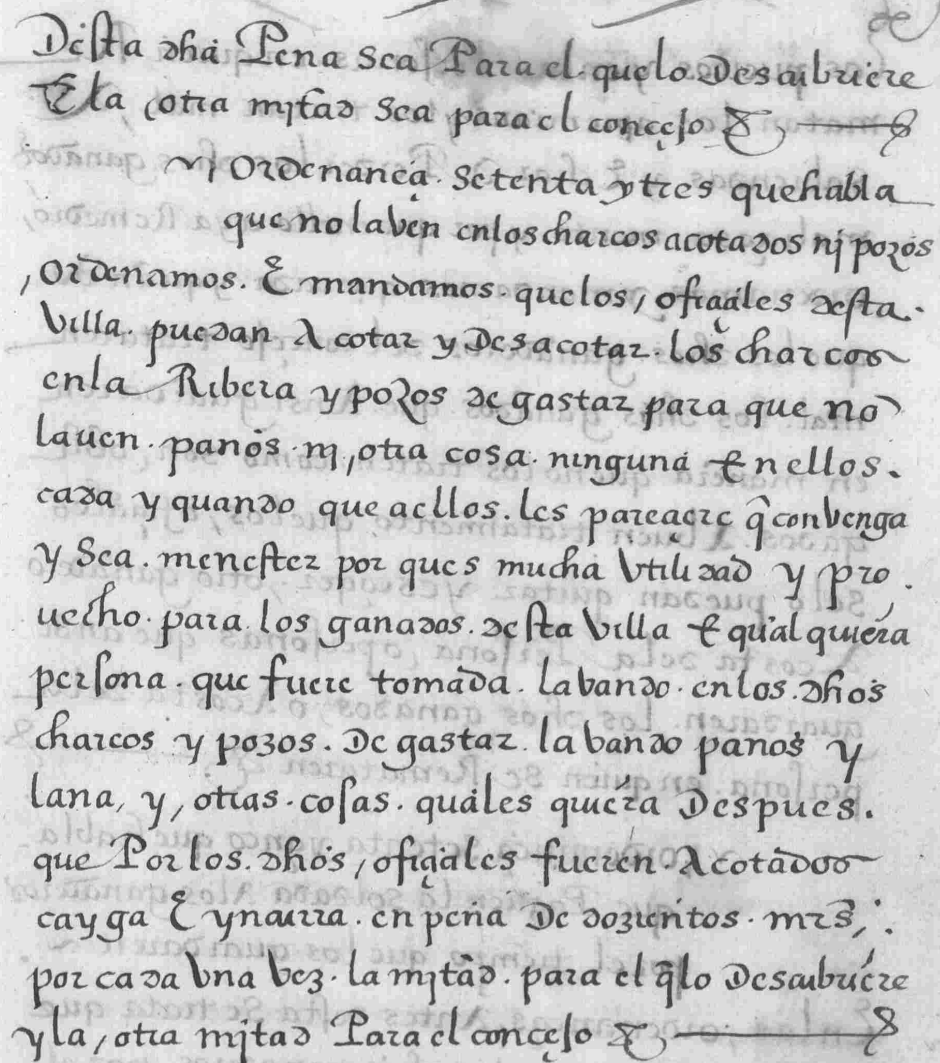 Desta dha Pena sea Para el que lo Descubriere
E la otra mjtad sea para el conçejo
Ordenança setenta y tres que habla
que no laben en los charcos acotados nj pozos
Ordenamos. E mandamos. que los, ofiçiales desta.
Villa. puedan Acotar y Desacotar. los charcos
en la Ribera y pozos de gastar para que no
lauen. panos. nj, otra cosa. ninguna En ellos.
cada y quando que a ellos. les pareçiere q̃ conbenga
y sea. menester por ques mucha Vtilidad y pro.
uecho. para los ganados. desta Villa E qualquiera
persona. que fuere tomada. labando. en los. dhos
charcos y pozos. De gastar labando panos y
lana, y, otras. cosas. quales quiera Despues.
que Por los. dhos, ofiçiales fueren Acotados
cayga E yncurra. en pena De dozientos. mrs,.
por cada Vna Vez. la mjtad. para el q̃lo Descubriere
y la, otra mjtad Para el conçejo